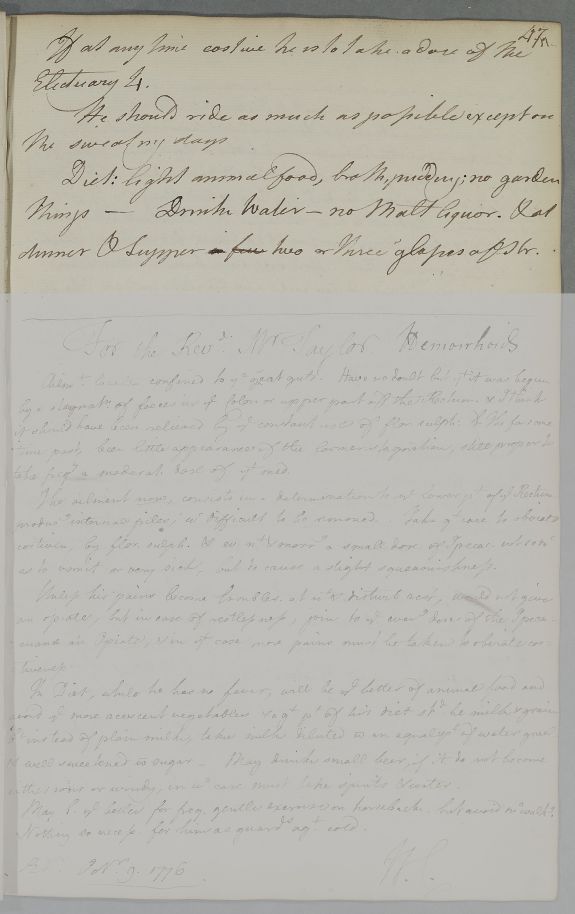 47
If at any time costive he is to take a dose of the
Electuary 4.
He should ride as much as possible except on
the sweating days
Diet: light animal food, broth, pudding; no garden
things — Drink Water – no Malt liquor. & at
dinner & Supper a few two or three glasses of
For the Revd. Mr Taylor. Hemorrhoids
confined to ye great guts. Have no doubt but yt it was begun
by a stagnatn. of faeces in ye colon or upper part of the Rectum. & I think
it should have been relieved by ye constant use of flor sulph: & tho for some
time past, been little appearance of the former stagnation, still proper to
take freqly a moderate dose of yt med.
The ailment now, consists in a determination to ye lower pt of ye Rectum
internal piles; is difficult to be removed. Take gt care to obviate
costiven. by flor. sulph. & ev. nt & morng a small dose of Ipecac. not so
as to vomit or very sick, but to cause a slight squeamishness.
Unless his pains become troubles. at nt & disturb rest, would not give
an opiate, but in case of restlessness, join to ye eveng dose of the Ipeca-
cuana an Opiate, & in yt case more pains must be taken to obviate cos-
tiveness.
In Diet, while he has no fever, will be ye better of animal food and
avoid ye more acescent vegetables & a gt pt of his diet shd be milk & grain
& instead of plain milk, take milk diluted wt an equal qty of water
& well sweetened wt sugar – May drink small beer, if it do not become
either sour or windy, in wc case must take spirits & water.
May be ye better for freq. gentle exercise on horseback. but avoid much walkg.
Nothing so necess. for him as guardg agt cold.
Novr. 9. 1776
W. C.